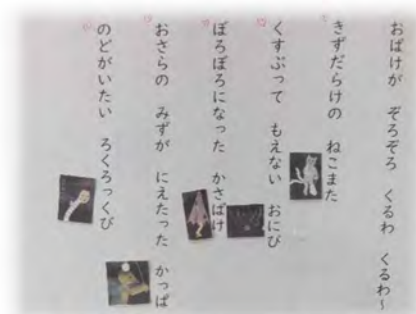 おばけが ぞろぞろ くるわ くるわ～
きずだらけの ねこまた
くすぶって もえない おにび
ぼろぼろになった かさばけ
おさらの みずが にえたった かっぱ
のどがいたい ろくろっくび